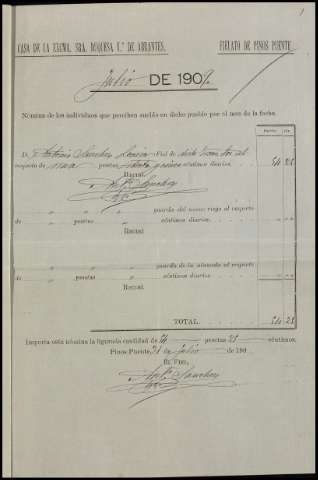 CASA DE LA EXCMA. SRA. DUQUESA V.ª DE ABRANTES.
FIELATO DE PINOS PUENTE.
Julio DE 190
Nómina de los individuos que perciben sueldo en dicho pueblo por el mes de la fecha.
D. Antonio Sanchez Fiel de al
respecto de una pesetas setenta y cinco céntimos diarios. 54 25
Recibí
Ant.º Sanchez
„ „ „ „ guarda del soto riego al respecto
de „ pesetas „ céntimos diarios.
Recibí
„ „ „ „ guarda de la alameda al respecto
de „ pesetas „ céntimos diarios.
Recibí
TOTAL. 54 25
Importa esta nómina la figurada cantidad de 54 pesetas 25 céntimos.
Pinos Puente, 31 de Julio de 190
El Fiel,
Ant.º Sanchez